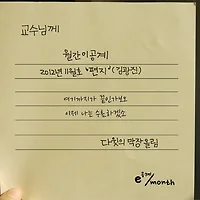 교수님께
월간이공계
2012년 11월호 "편지" (김광진)
여기까지가 끝인가보오
이제 나는 수료하겠소
다윗의 막장 올림
e /month